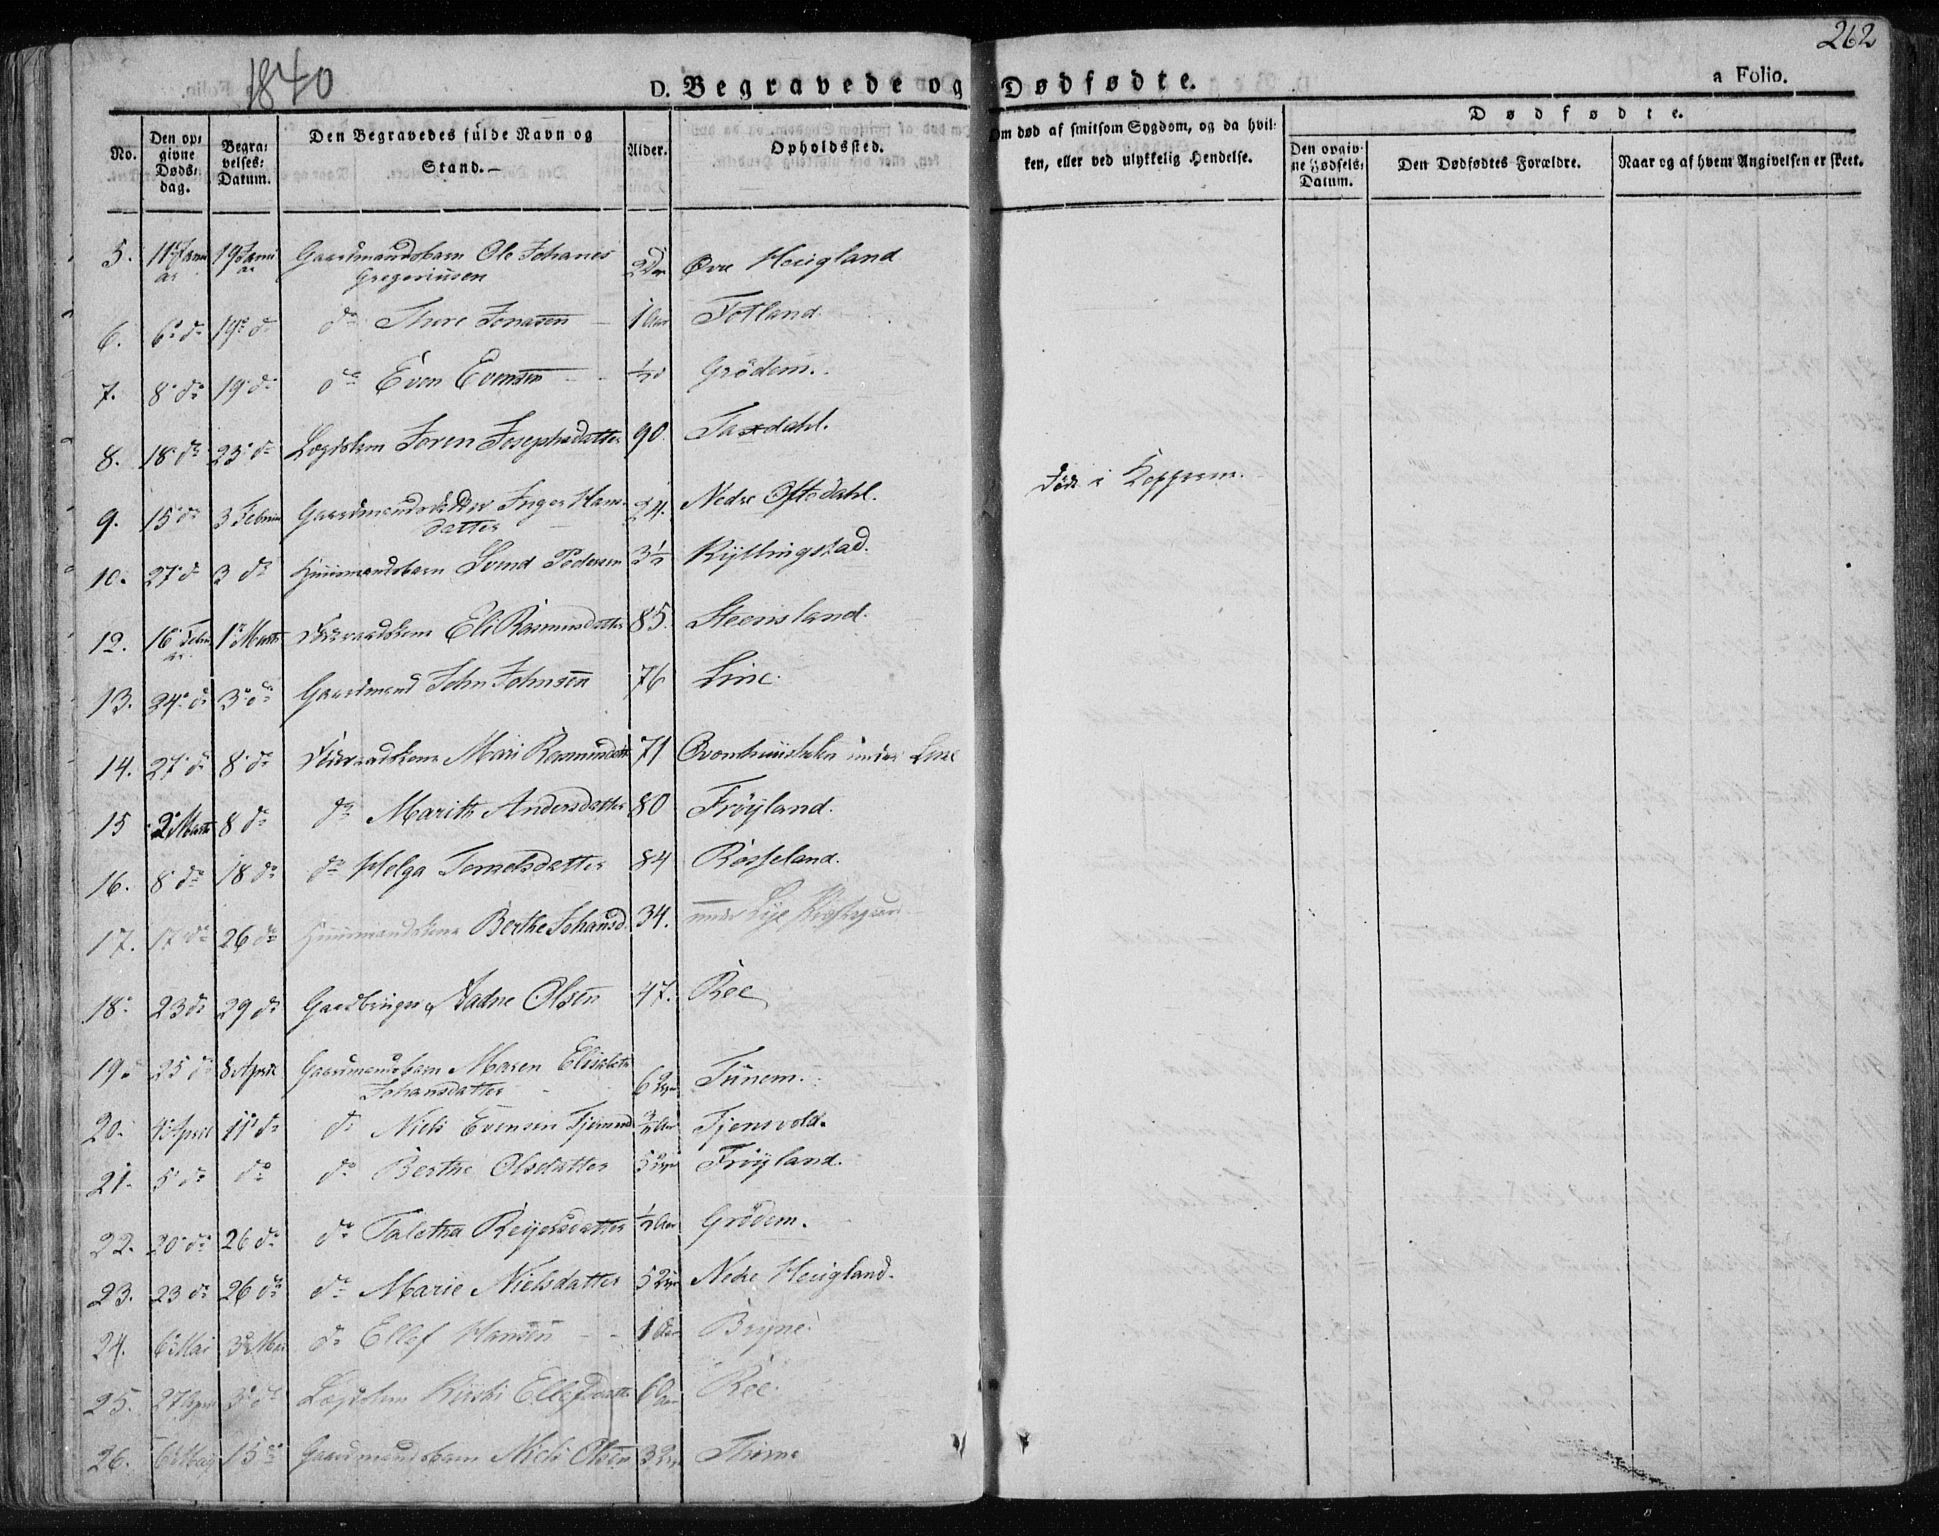 262
1840
D. Begravede og Dødfødte.
a Folio.
No.
Den op: givne Døds: dag.
Begra: velses: Datum.
Den Begravedes fulde Navn og Stand.—
Alder.
Opholdssted.
Om død af smitsom Sygdom, og da hvil: ken, eller ved ulykkelig Hendelse.
Dødfødte.
Den opgiv: ne Fødsels: Datum.
Den Dødfødtes Forældre.
Naar og af hvem Angivelsen er skeet.
5. 11 Janu ar 19 Janu ar Gaardmandsbarn Ole Johanes Gregoriusen Øvre Heigland
6. 6 do 19 do do Thore Jonasen 1 Aar Fotland
7. 8 do 19 do do Even Evensen ½ Grödem.
8. 18 do 23 do Lægdslem Josephsdatter 90. Taxdahl.
9. 15 do 3 Februar Inger Hans datter 24. Nedre Oftedahl. Döde i
10. 27 d 3 do Huusmandsbarn Svend Pedersen 3½ Kyllingstad.
12. 16 Febru ar 1 Marts Eli Rasmusdatter 85. Steensland.
13. 24 do 3 do Gaardmand John Johnsen 76 Line.
14. 27 do 8 do Mari Rasmusdatt 71 under Line
15 2 Marts 8 do do Marithe Andersdatter 80 Fröyland.
16. 8 do 18 do do Helga Tornelsdatter 84 Rosseland.
17. 17 do 26 do Huusmandskone Berthe Johansd. 34. under Lye
18. 23 do 29 do Gaardbruger Sadne Olsen 47. Ree
19. 25 do 8 April Gaardmandsbarn Maren Elisabeth Johansdatter 6 Tunem.
20. 4 April 11 do do Niels Evensen Tjensvold.
21. 5 do do do Berthe Olsdatter 5 Fröyland.
22. 20 do 26 do do Taletha Reyersdatter ½ Aar Grödem.
23. 23 do 26 do do Marie Nielsdatter 5 Nedre Heigland.
24. 6 Mai 3 Mai do Ellef Hansen 1 Aar Bryne.
25. 27 April 3 do Lægdslem Ellefsdatter 6 Aar Ree.
26. 6 May 15 do Gaardmandsbarn Niels Olsen 3 Thime